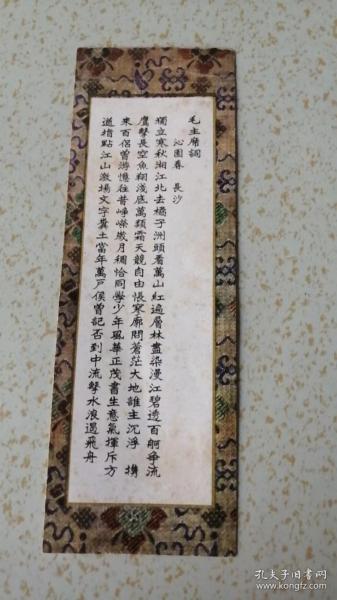 毛主席詞
沁園春 長沙
獨立寒秋湘江北去橘子洲頭看萬山紅遍層林盡染漫江碧透百舸爭流
鷹擊長空魚翔淺底萬類霜天競自由悵寥廓問蒼茫大地誰主沉浮 攜
來百侶曾游憶往昔崢嶸歲月稠恰同學少年風華正茂書生意氣揮斥方
遒指點江山激揚文字糞土當年萬戶侯曾記否到中流擊水浪遏飛舟
孔夫子旧书网
www.kongfz.com